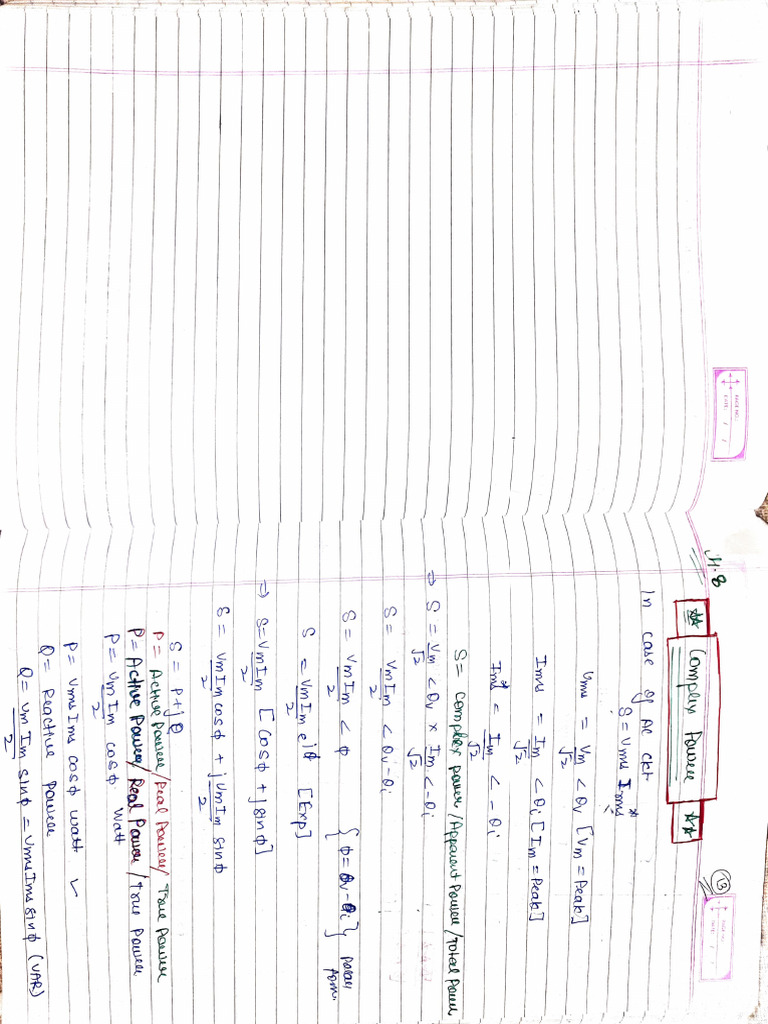 PAGE NO.
DATE: / /
H.8
13
PAGE NO.
DATE: / /
☆☆ Complex Power ☆☆
In case of AC ckt
S = Vrms I*rms
Vrms = Vm/√2 < θv [Vm = Peak]
Irms = Im/√2 < θi [Im = Peak]
I*rms = Im/√2 < -θi
S = complex power/Apparent Power/Total Power
⇒ S = Vm/√2 < θv × Im/√2 < -θi
S = VmIm/2 < θv-θi
S = VmIm/2 < ϕ {ϕ = θv-θi} polar form.
S = VmIm/2 e^jϕ [Exp]
⇒ S = VmIm/2 [cosϕ + jsinϕ]
S = VmIm cosϕ/2 + jVmIm/2 sinϕ
S = P+jQ
P = Active Power/Real Power/True Power
P = Active Power/Real Power/True Power
P = VmIm/2 cosϕ Watt
P = Vrms Irms cosϕ watt ✓
Q = Reactive Power
Q = VmIm/2 sinϕ = VrmsIrms sinϕ (VAR)